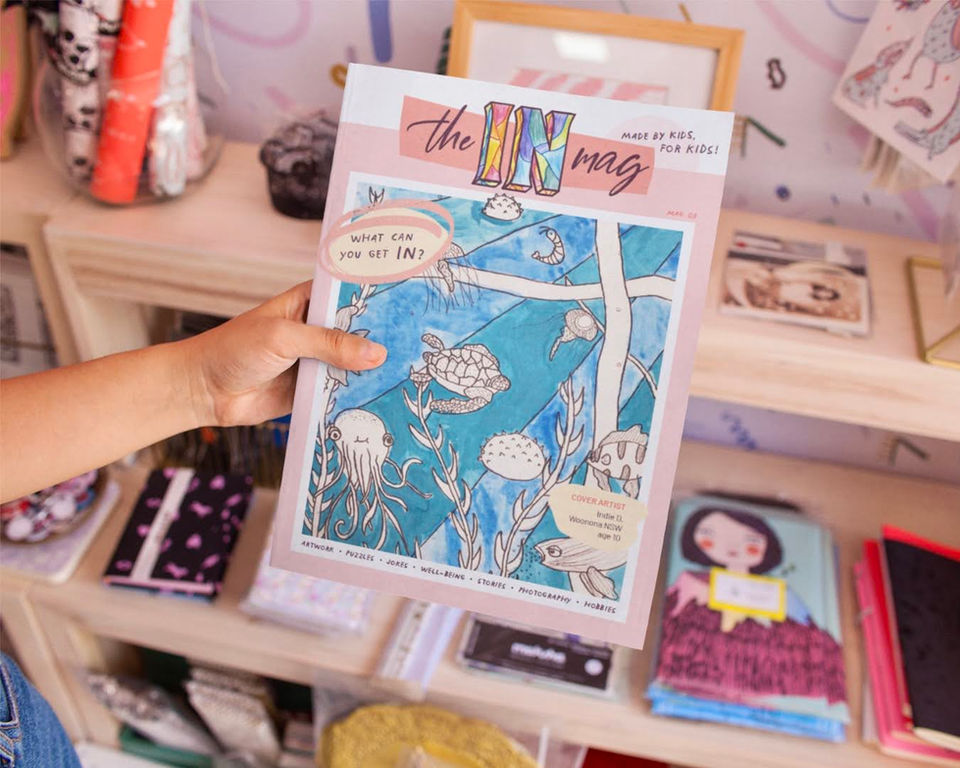 the IN mag
MADE BY KIDS,
FOR KIDS!
MAG. 03
WHAT CAN
YOU GET IN?
COVER ARTIST
Indie D.
Woonona NSW
age 10
ARTWORK • PUZZLES • JOKES • WELL-BEING • STORIES • PHOTOGRAPHY • HOBBIES